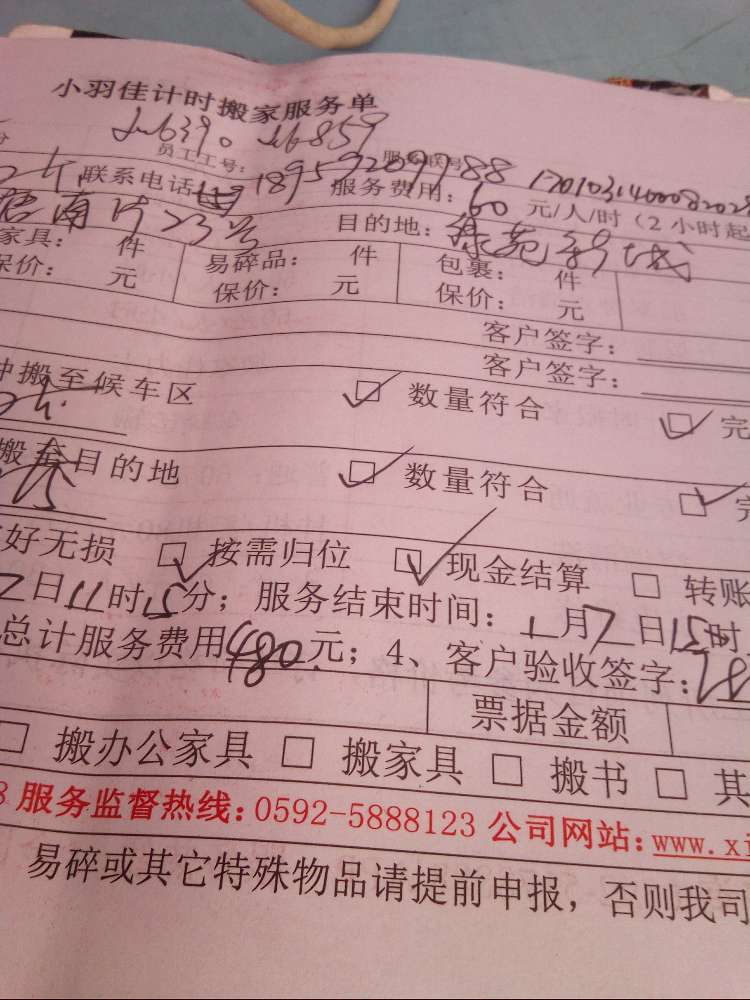 小羽佳计时搬家服务单
员工工号:
联系电话 18959209988 服务费用:60元/人/时(2小时起
23号 目的地:
家具: 件 易碎品: 件 包裹: 件
保价: 元 保价: 元 保价: 元
客户签字:
客户签字:
搬至候车区 数量符合 完
搬至目的地 数量符合
好无损 按需归位 现金结算 转账
日11时15分;服务结束时间:1月7日15时
总计服务费用480元;4、客户验收签字:
票据金额
搬办公家具 搬家具 搬书 其
8 服务监督热线:0592-5888123 公司网站:www.xi
易碎或其它特殊物品请提前申报,否则我司